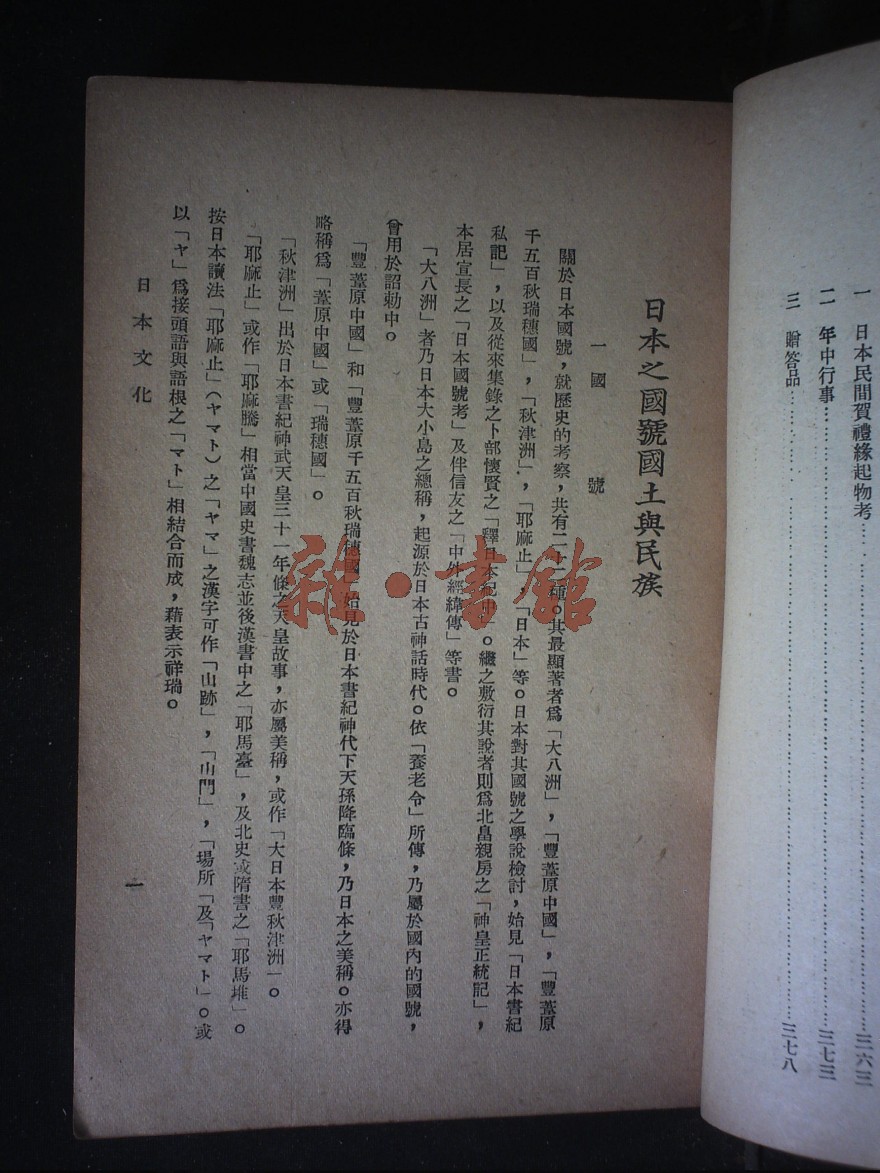 一　日本民間賀禮緣起物考……三六三
二　年中行事……三七三
三　贈答品……三七八
日本之國號國土與民族
一　國　號
關於日本國號，就歷史的考察，共有二十二種。其最顯著者爲「大八洲」，「豐葦原中國」，「豐葦原
千五百秋瑞穗國」，「秋津洲」，「耶麻止」，「日本」等。日本對其國號之學說檢討，始見「日本書紀
私記」，以及從來集錄之卜部懷賢之「釋日本紀中」。繼之敷衍其說者則爲北畠親房之「神皇正統記」，
本居宣長之「日本國號考」及伴信友之「中外經緯傳」等書。
「大八洲」者乃日本大小島之總稱，起源於日本古神話時代。依「養老令」所傳，乃屬於國內的國號，
曾用於詔勅中。
「豐葦原中國」和「豐葦原千五百秋瑞穗國」始見於日本書紀神代下天孫降臨條，乃日本之美稱。亦得
略稱爲「葦原中國」或「瑞穗國」。
「秋津洲」出於日本書紀神武天皇三十一年條之天皇故事，亦屬美稱，或作「大日本豐秋津洲」。
「耶麻止」或作「耶麻騰」相當中國史書魏志並後漢書中之「耶馬臺」，及北史或隋書之「耶馬堆」。
按日本讀法「耶麻止」（ヤマト）之「ヤマ」之漢字可作「山跡」，「山門」，「場所「及「ヤマト」。或
以「ヤ」爲接頭語與語根之「マト」相結合而成，藉表示祥瑞。
日本文化
一
雜·書館